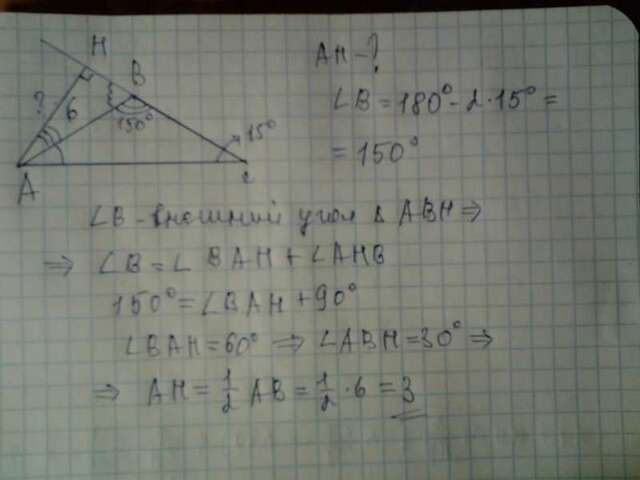 H
B
?
6
150°
15°
A
C
AH - ?
∠B = 180° - 2·15° =
= 150°
∠B - внешний угол Δ ABH ⇒
⇒ ∠B = ∠BAH + ∠AHB
150° = ∠BAH + 90°
∠BAH = 60° ⇒ ∠ABH = 30° ⇒
⇒ AH = 1/2 AB = 1/2 · 6 = 3